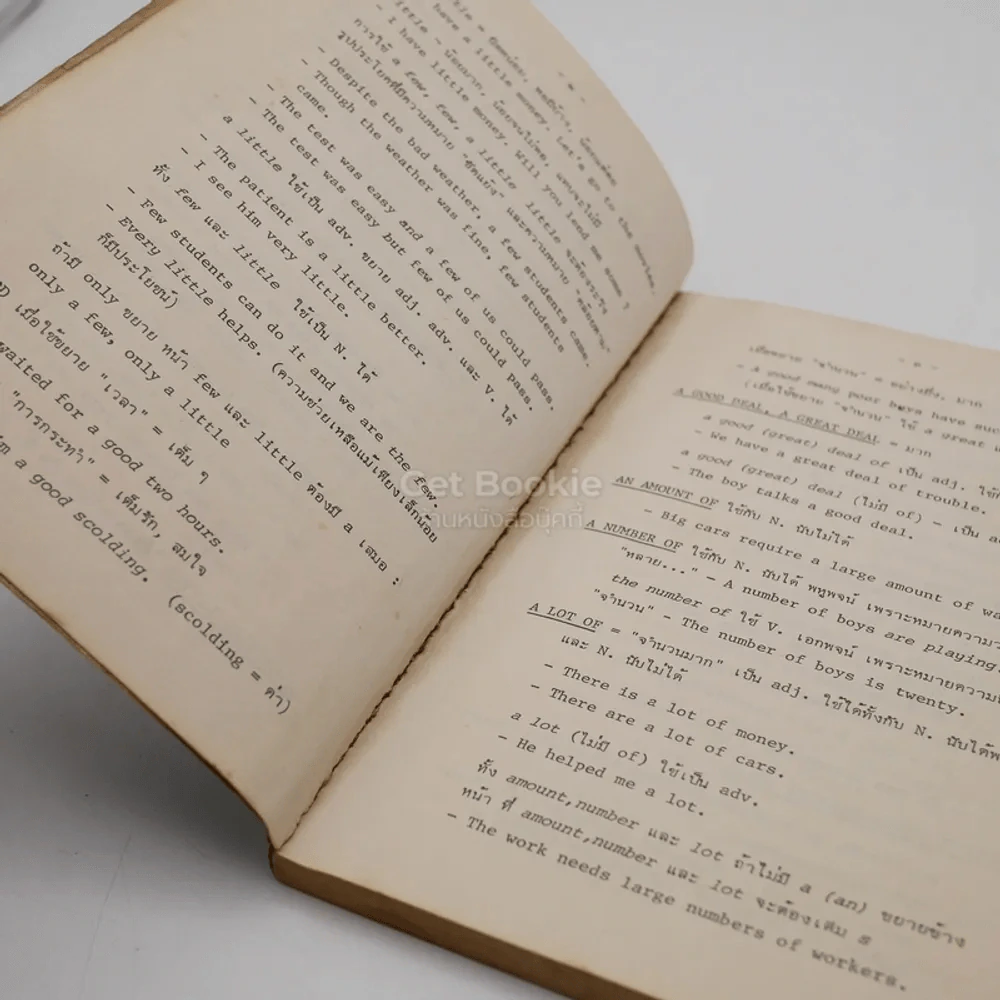 have a little money. Let's go to the movies.
- น้อยมาก, น้อยจนไม่พอ, แทบจะไม่มี
- I have little money. Will you lend me some ?
การใช้ a few, few, a little little จะต้องระวัง
รูปประโยคที่มีความหมาย "ขัดแย้ง" และความหมาย "คล้อยตาม"
- Despite the bad weather, a few students came.
- Though the weather was fine, few students
came.
- The test was easy and a few of us could pass.
- The test was easy but few of us could pass.
a little ใช้เป็น adv. ขยาย adj. adv. และ V. ได้
- The patient is a little better.
- I see him very little.
ทั้ง few และ little ใช้เป็น N. ได้
- Few students can do it and we are the few.
- Every little helps. (ความช่วยเหลือแม้เพียงเล็กน้อย
ก็มีประโยชน์)
ถ้ามี only ขยาย หน้า few และ little ต้องมี a เสมอ :
only a few, only a little
เมื่อใช้ขยาย "เวลา" = เต็ม ๆ
waited for a good two hours.
"การกระทำ" = เต็มรัก, สมใจ
a good scolding. (scolding = ด่า)
เมื่อขยาย "จำนวน" = อย่างยิ่ง, มาก
- A good many poor boys have
(เมื่อใช้ขยาย "จำนวน" ใช้ a great
A GOOD DEAL, A GREAT DEAL = มาก
a good (great) deal of เป็น adj.
- We have a great deal of trouble.
a good (great) deal (ไม่มี of) - เป็น
- The boy talks a good deal.
AN AMOUNT OF ใช้กับ N. นับไม่ได้
- Big cars require a large amount of
A NUMBER OF ใช้กับ N. นับได้ พหูพจน์ เพราะหมายความ
"หลาย..." - A number of boys are playing.
the number of ใช้ V. เอกพจน์ เพราะหมายความ
"จำนวน" - The number of boys is twenty.
A LOT OF = "จำนวนมาก" เป็น adj. ใช้ได้ทั้งกับ N. นับได้
และ N. นับไม่ได้
- There is a lot of money.
- There are a lot of cars.
a lot (ไม่มี of) ใช้เป็น adv.
- He helped me a lot.
ทั้ง amount,number และ lot ถ้าไม่มี a (an) ขยายข้าง
หน้า ที่ amount,number และ lot จะต้องเติม s
- The work needs large numbers of workers.
Get Bookie
ร้านหนังสือบุ๊คกี้